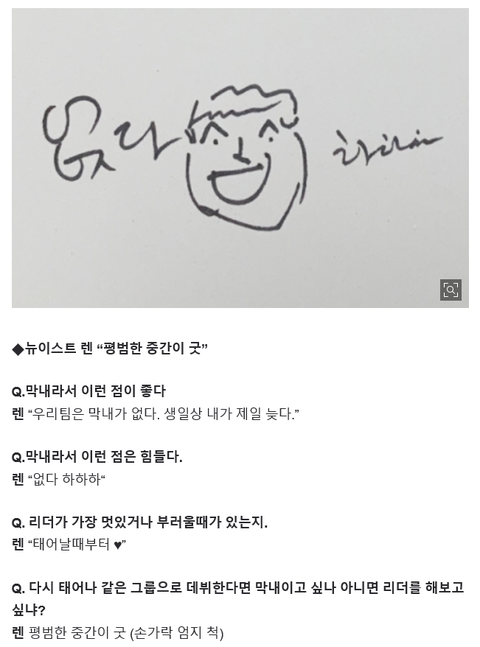 없다 하하하
◆뉴이스트 렌 “평범한 중간이 굿”
Q.막내라서 이런 점이 좋다
렌 “우리팀은 막내가 없다. 생일상 내가 제일 늦다.”
Q.막내라서 이런 점은 힘들다.
렌 “없다 하하하“
Q. 리더가 가장 멋있거나 부러울때가 있는지.
렌 “태어날때부터 ♥”
Q. 다시 태어나 같은 그룹으로 데뷔한다면 막내이고 싶나 아니면 리더를 해보고
싶냐?
렌 평범한 중간이 굿 (손가락 엄지 척)